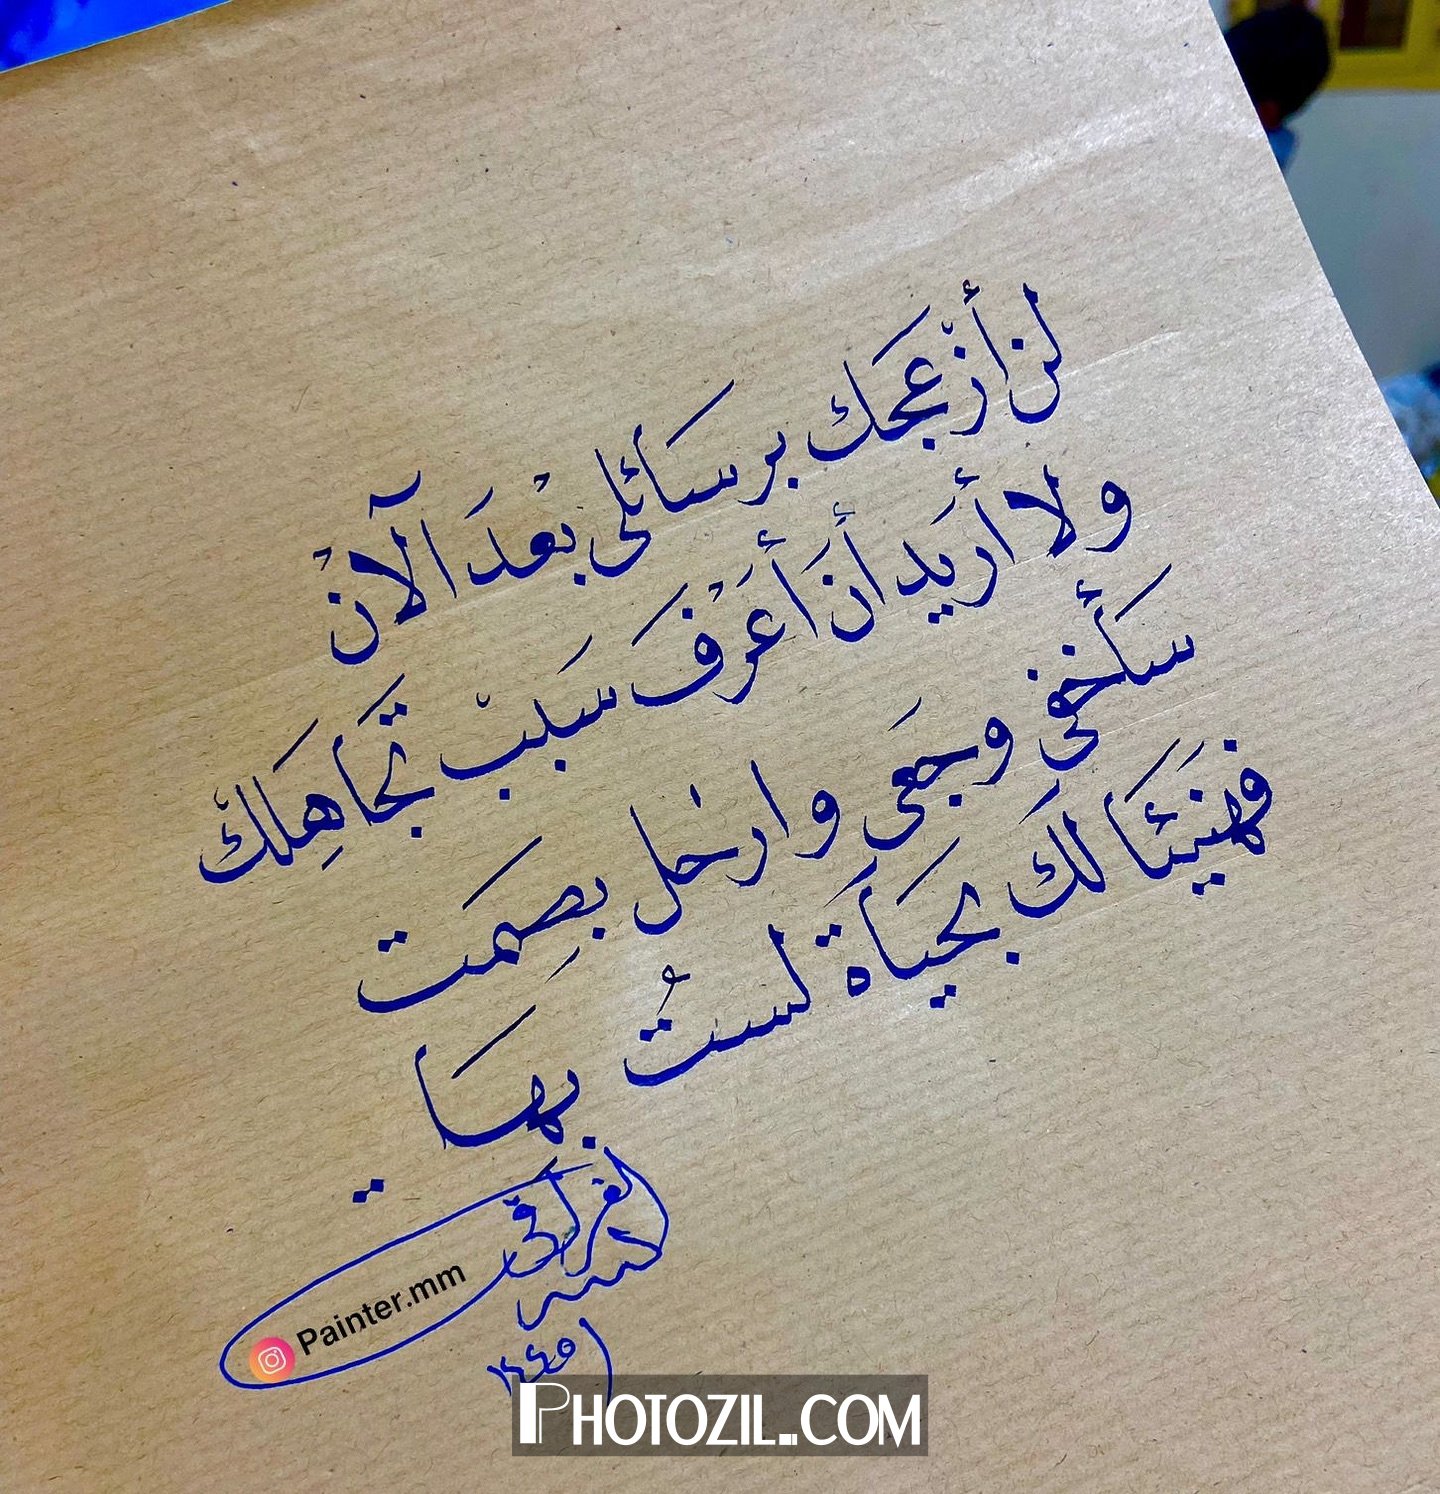 لن أزْعجَك برسَائلي بعْدَ الآنْ
ولا أريَد أنَ أعَرْفَ سَببْ تجَاهِلَكْ
سَأخفي وجعَي وارحل بِصِمَت
فهنيَئَا لَكَ بحَيَاَة لستُ بهَا
..
الفراتي
١٤٤٥
Painter.mm
PHOTOZIL.COM